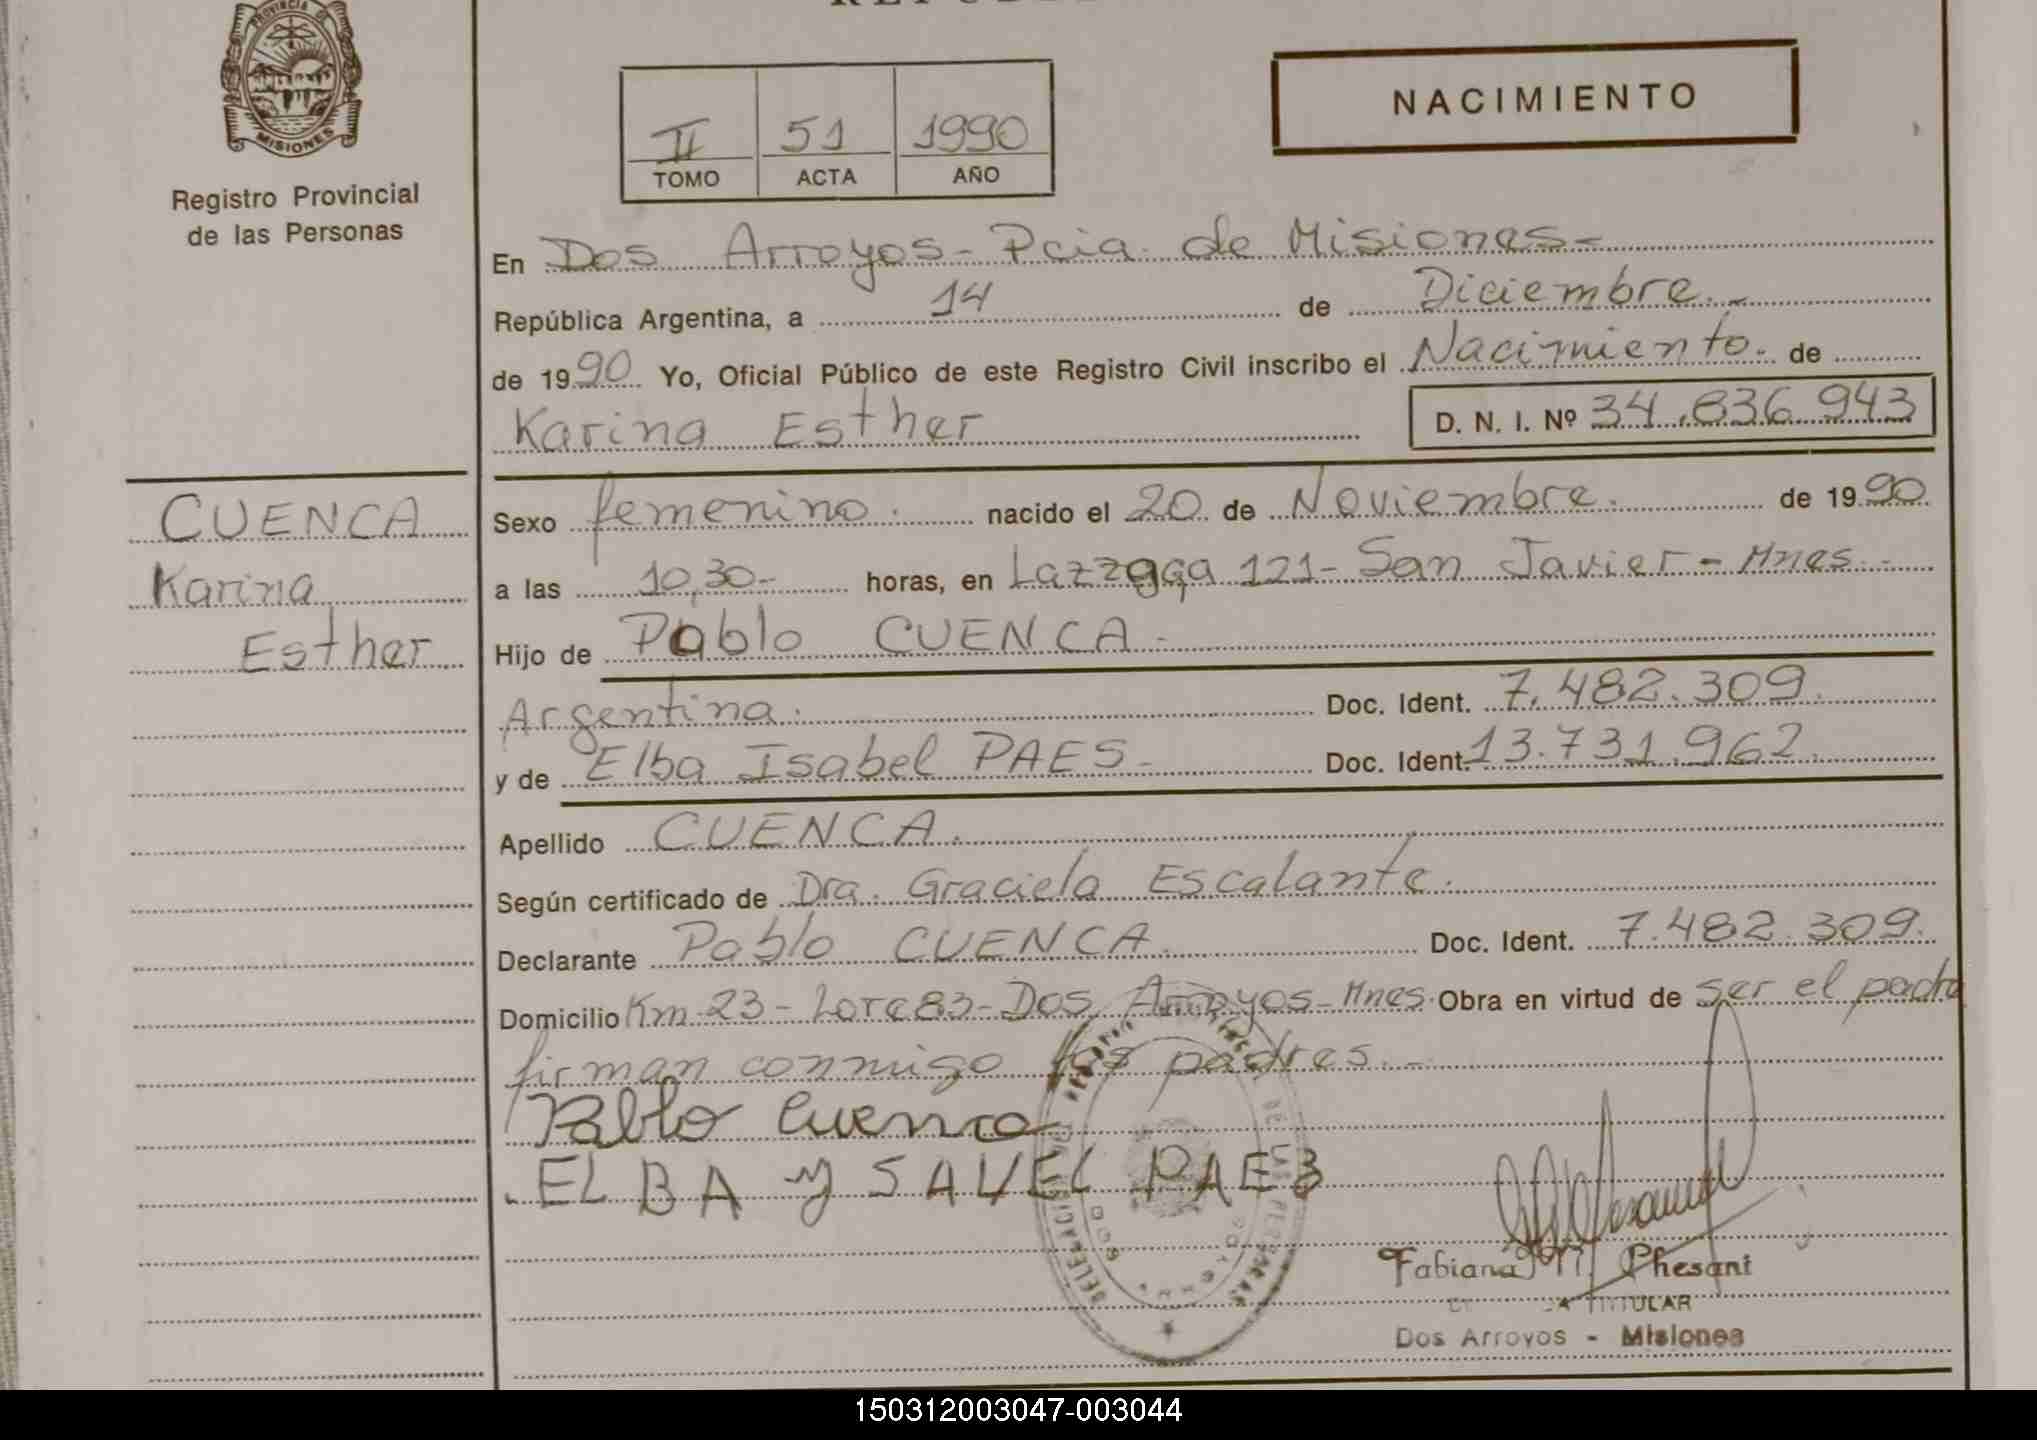 PROVINCIA DE
MISIONES
Registro Provincial
de las Personas
II 51 1990
TOMO ACTA AÑO
NACIMIENTO
En Dos Arroyos - Pcia. de Misiones -
República Argentina, a 14 de Diciembre. -
de 1990 Yo, Oficial Público de este Registro Civil inscribo el Nacimiento. de
Karina Esther D. N. I. Nº 34.836.943
CUENCA
Karina
Esther
Sexo femenino. nacido el 20 de Noviembre. de 1990.
a las 10,30- horas, en Lazzaga 121- San Javier - Mnes. -
Hijo de Pablo CUENCA -
Argentina. Doc. Ident. 7.482.309.
y de Elba Isabel PAES - Doc. Ident. 13.731.962.
Apellido CUENCA.
Según certificado de Dra. Graciela Escalante.
Declarante Pablo CUENCA. Doc. Ident. 7.482.309.
Domicilio Km 23 - Lote 83 - Dos Arroyos - Mnes. Obra en virtud de ser el padre
firman conmigo los padres. -
Pablo Cuenca
ELBA Y SAVEL PAES
DE LAS PERSONAS
Fabiana M. Phesant
TITULAR
Dos Arroyos - Misiones
150312003047-003044